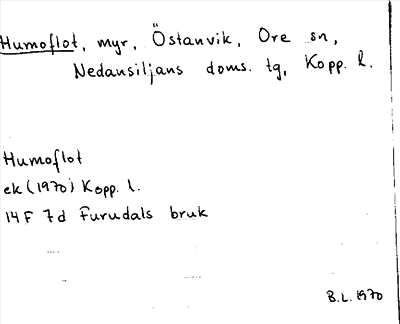 Humoflot, myr, Östanvik, Ore sn,
Nedansiljans doms. tg, Kopp. l.
Humoflot
ek (1970) Kopp. l.
14F 7d Furudals bruk
B.L. 1970